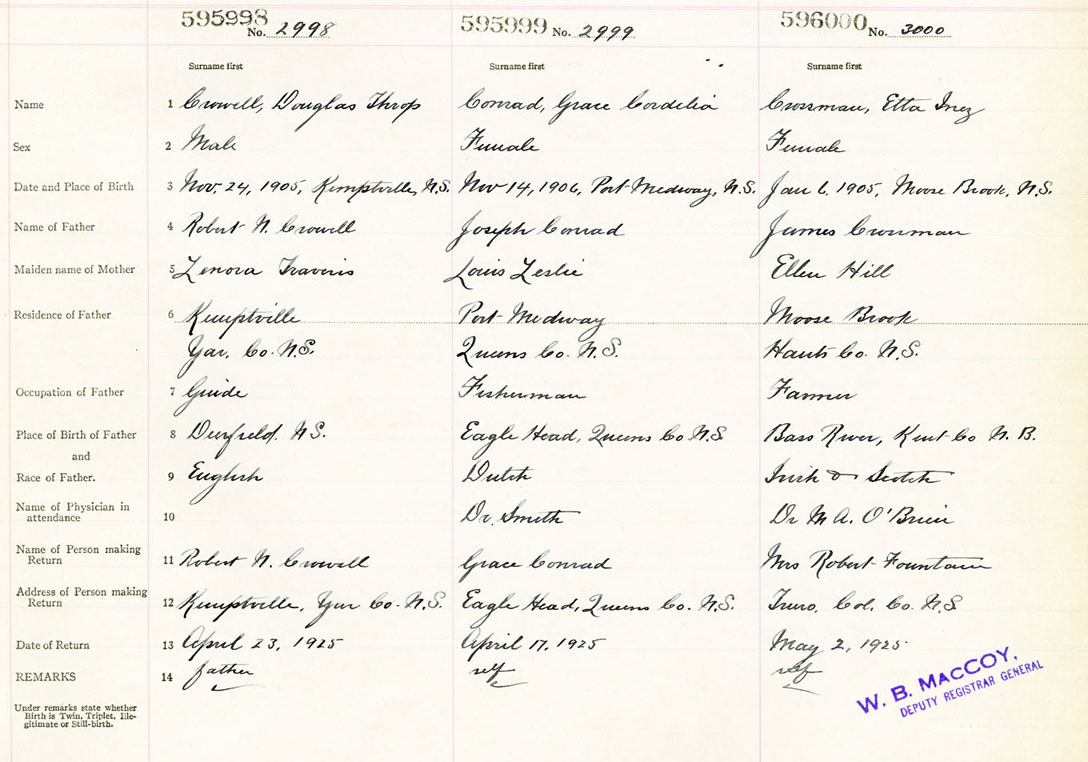 595998 No. 2998 595999 No. 2999 596000 No. 3000
Surname first Surname first Surname first
Name 1 Crowell, Douglas Throp Conrad, Grace Cordelia Crossman, Etta Inez
Sex 2 Male Female Female
Date and Place of Birth 3 Nov. 24, 1905, Kemptville, N.S. Nov 14, 1906, Port Medway, N.S. Jan 6, 1905, Moose Brook, N.S.
Name of Father 4 Robert N. Crowell Joseph Conrad James Crossman
Maiden name of Mother 5 Lenora Travins Louis Leslie Ellen Hill
Residence of Father 6 Kemptville Port Medway Moose Brook
Yar. Co. N.S. Queens Co. N.S. Hants Co. N.S.
Occupation of Father 7 Guide Fisherman Farmer
Place of Birth of Father 8 Deerfield. N.S. Eagle Head, Queens Co N.S Bass River, Kent Co N. B.
and
Race of Father. 9 English Dutch Irish & Scotch
Name of Physician in
attendance 10 Dr. Smith Dr M A. O'Brien
Name of Person making
Return 11 Robert N. Crowell Grace Conrad Mrs Robert Fountain
Address of Person making
Return 12 Kemptville, Yar Co. N.S. Eagle Head, Queens Co. N.S. Truro, Col. Co. N.S
Date of Return 13 April 23, 1925 April 17, 1925 May 2, 1925
REMARKS 14 father self self
W. B. MACCOY,
DEPUTY REGISTRAR GENERAL
Under remarks state whether
Birth is Twin, Triplet, Ille-
gitimate or Still-birth.